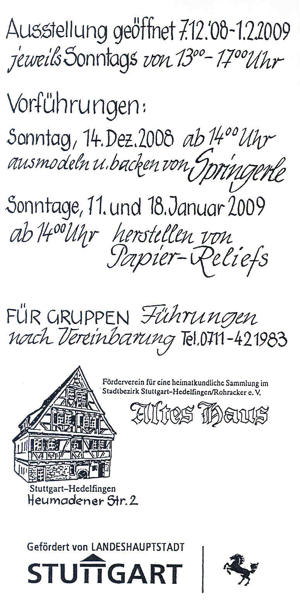 Ausstellung geöffnet 7.12.'08-1.2.2009
jeweils Sonntags von 13⁰⁰-17⁰⁰Uhr
Vorführungen:
Sonntag, 14. Dez. 2008 ab 14⁰⁰Uhr
ausmodeln u. backen von Springerle
Sonntage, 11. und 18. Januar 2009
ab 14⁰⁰Uhr herstellen von
Papier-Reliefs
FÜR GRUPPEN Führungen
nach Vereinbarung Tel. 0711-421983
Förderverein für eine heimatkundliche Sammlung im
Stadtbezirk Stuttgart-Hedelfingen/Rohracker e. V.
Altes Haus
Stuttgart-Hedelfingen
Heumadener Str. 2
Gefördert von LANDESHAUPTSTADT
STUTTGART